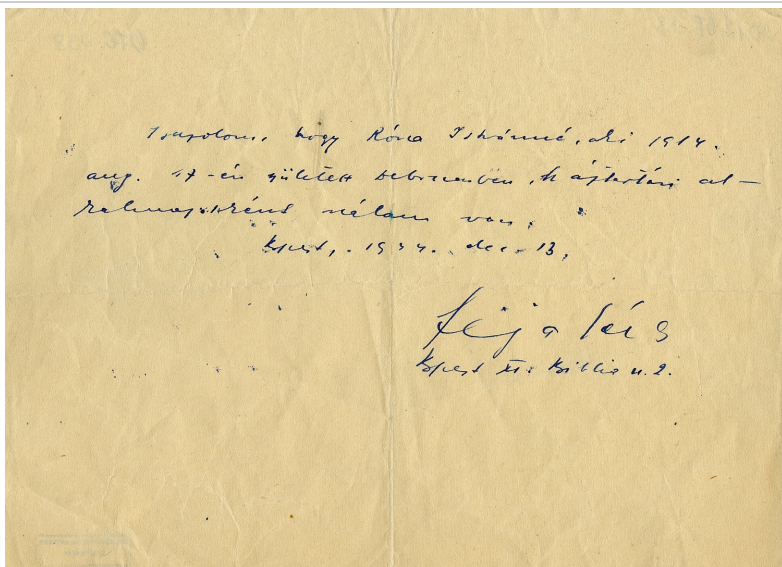 Igazolom, hogy Róna Istvánné, aki 1914.
aug. 17-én született Debrecenben, háztartási al-
kalmazottként nálam van.
Bpest, 1944. dec. 13.
Féja Géza
Bpest XI. Biblia u. 2.